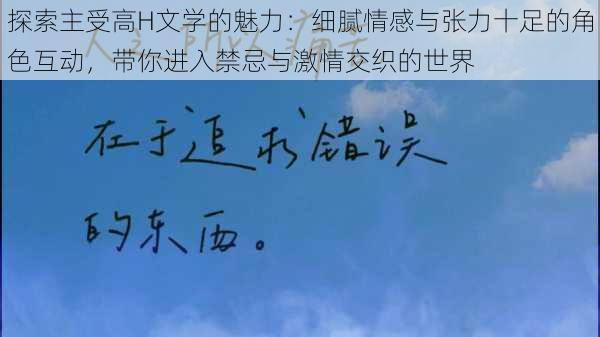 探索主受高H文学的魅力：细腻情感与张力十足的角
色互动，带你进入禁忌与激情交织的世界
在于追求错误
的东西。